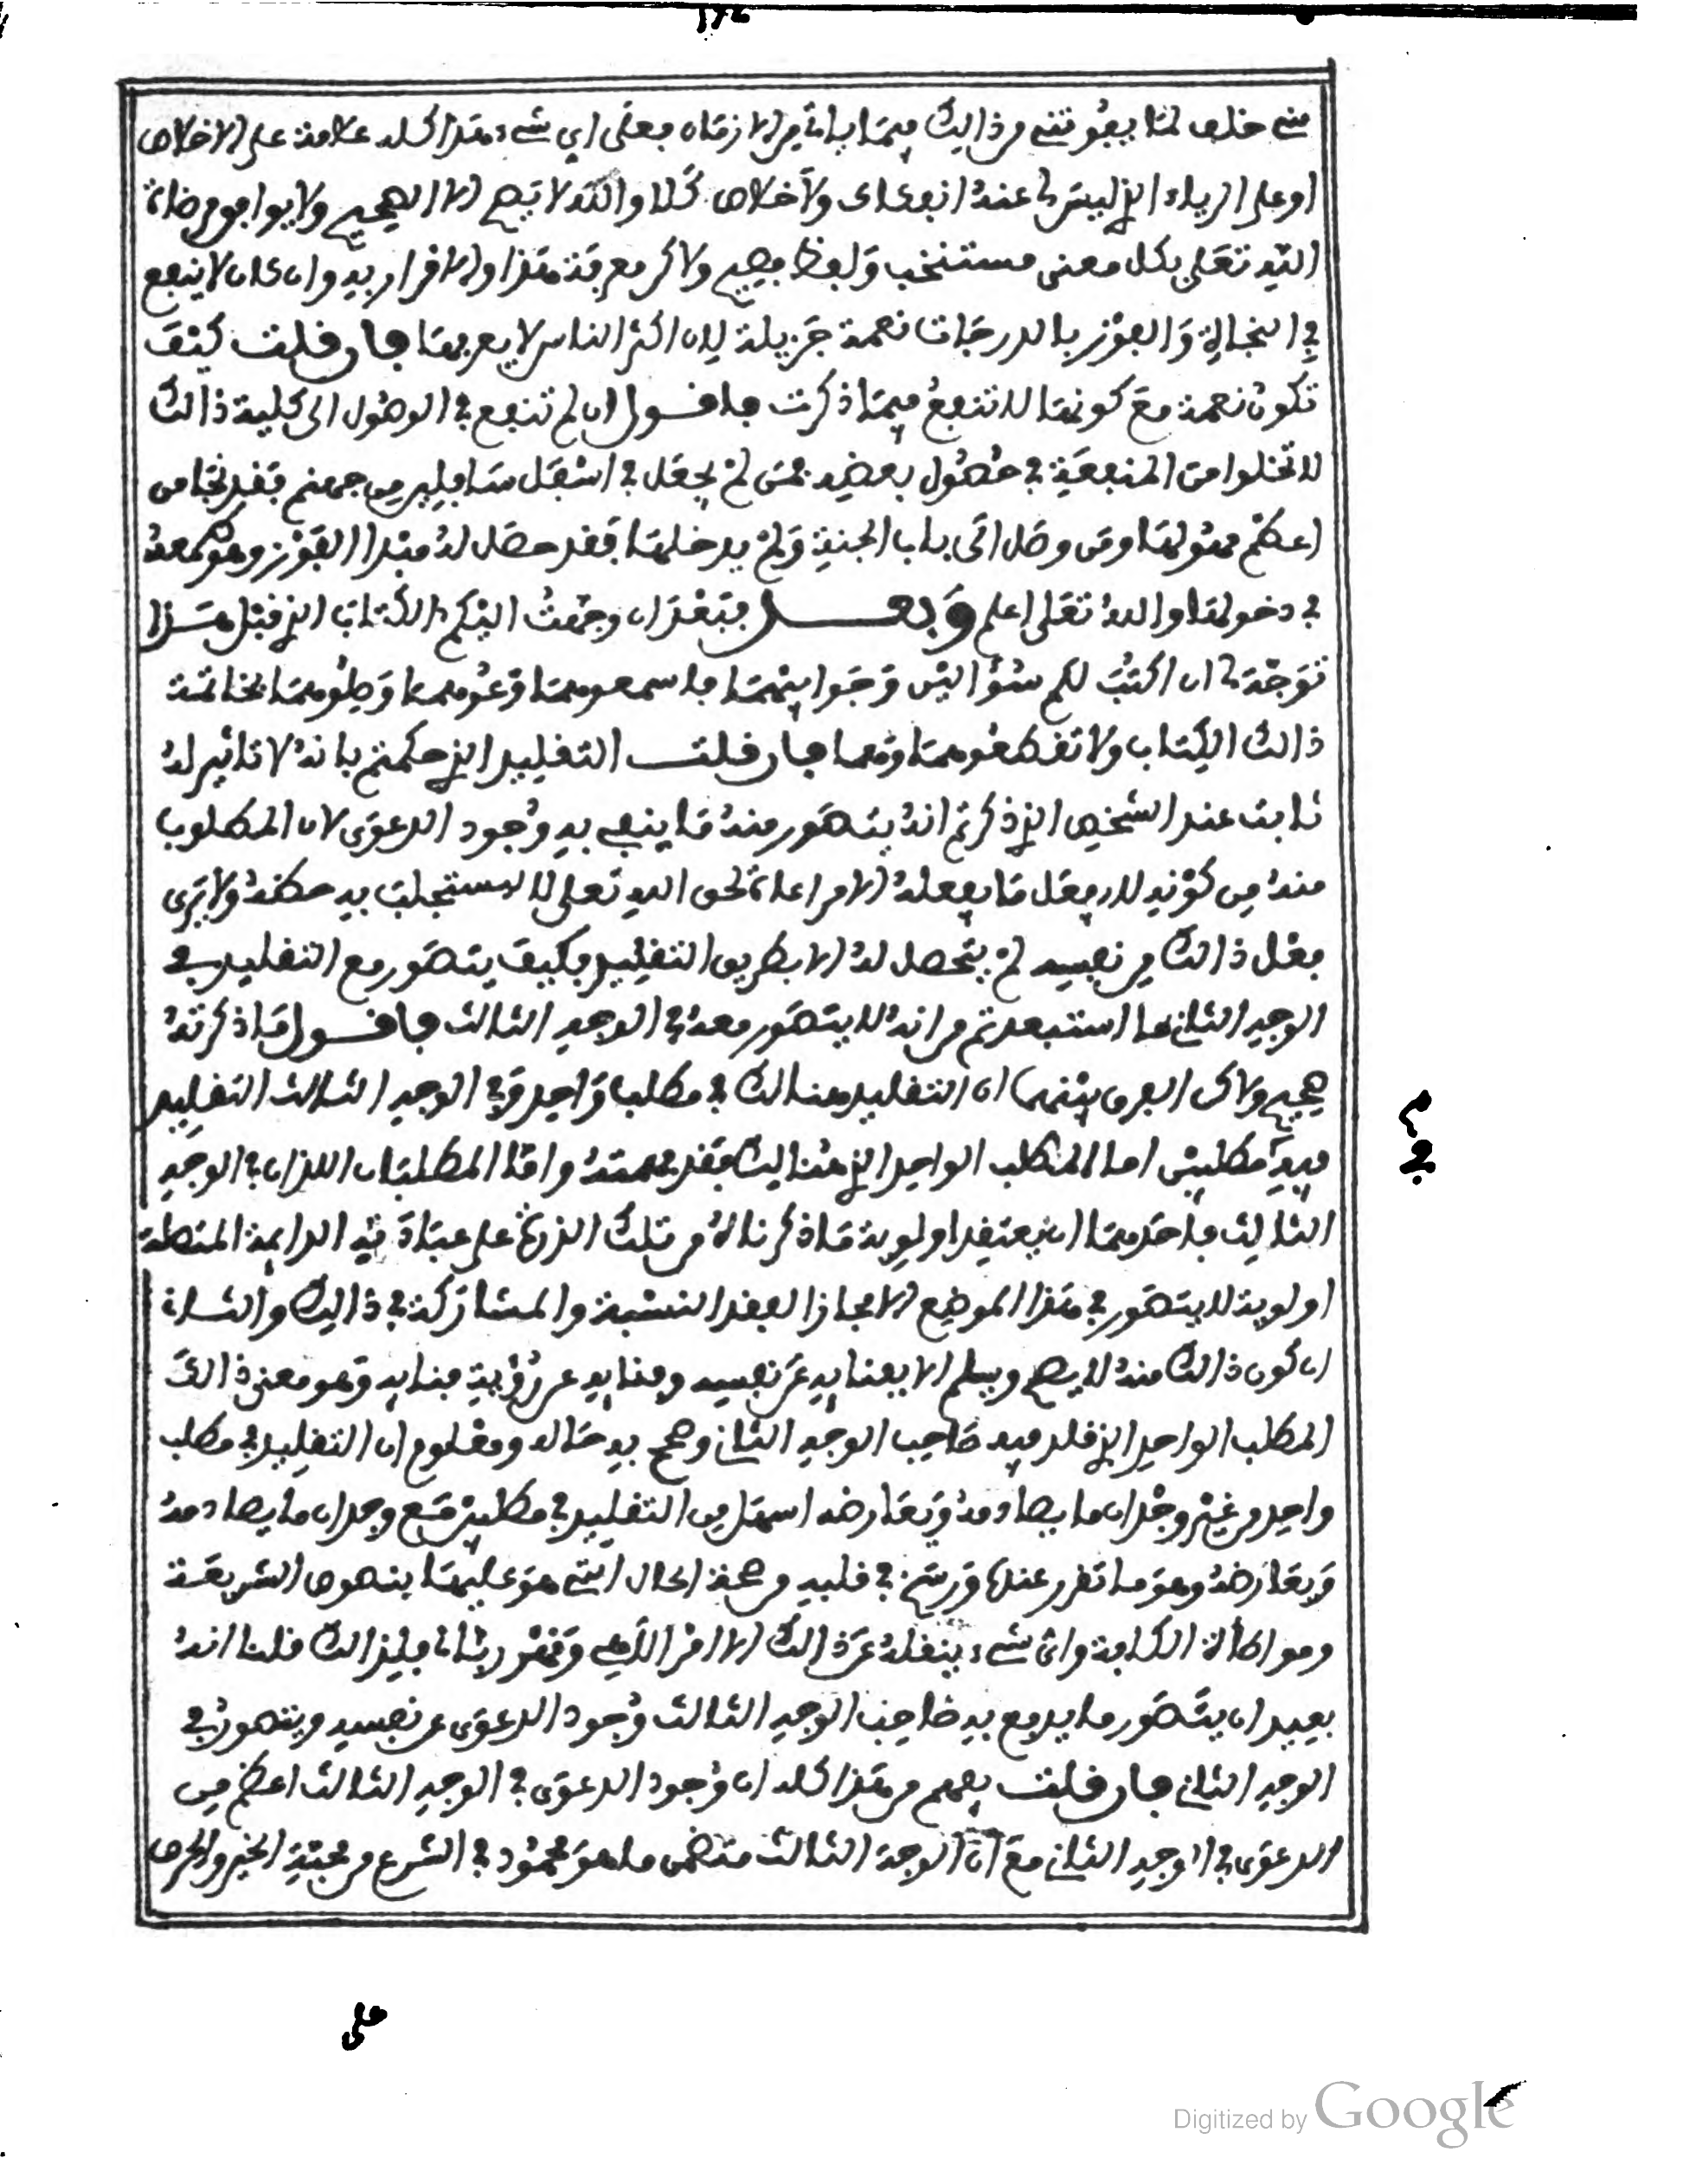 ١٧٤
شيء خلف لما يفوتني من ذالك فيما ياتي من الازمان فعلى اي شيء هذا كله علامة على الاخلاص
او على الرياء الذي ليس لي عنده انفكاك ولا خلاص كلا والله لا يصح الا الصحيح ولا يوافق مرضات
الله تعلى بكل معنى مستنخب ولفظ فصيح ولاكن معرفة هذا والاقرار به وان كان لا ينفع
في النجاة والفوز بالدرجات نعمة جزيلة لان اكثر الناس لا يعرفها فان قلت كيف
تكون نعمة مع كونها لا تنفع فيما ذكرت فاقول ان لم تنفع في الوصول الى كلية ذالك
لا تخلوا من المنفعة في حصول بعضه فمن لم يجعل في اسفل سافلين من جهنم فقد نجا من
اعظم هولها ومن وصل الى باب الجنة ولم يدخلها فقد حصل له مبدا الفوز وهو طمعه
في دخولها والله تعلى اعلم وبعد فبعد ان وجهت اليكم الكتاب الذي قبل هذا
توجه لي ان اكتب لكم سؤالين وجوابيهما فاسمعوهما وعوهما وصلوهما بخاتمة
ذالك الكتاب ولا تقطعوهما وهما فان قلت التقليد الذي حكمتم بانه لا تاثير له
ثابت عند الشخص الذي ذكرتم انه يتصور منه ما ينفي به وجود الدعوى لان المطلوب
منه من كونه لا يفعل ما يفعله الا مراعاة لحق الله تعلى لا يستجلب به حظه ولا يرى
فعل ذالك من نفسه لم يتحصل له الا بطريق التقليد فكيف يتصور مع التقليد في
الوجه الثاني ما استبعدتم من انه لا يتصور معه في الوجه الثالث فاقول ما ذكرته
صحيح ولاكن الفرق بينهما ان التقليد هنالك في مطلب واحد وفي الوجه الثالث التقليد
فيه مطلبين اما المطلب الواحد الذي هنالك فقد فهمته واما المطلبان اللذان في الوجه
الثالث فاحدهما ان يعتقد اولوية ما ذكرناه من تلك الدرجة على عبادته الدايمة المتصلة
اولوية لا يتصور في هذا الموضع الا مجاز الفقد النسبة والمشاركة في ذالك والثاني
ان كون ذالك منه لا يصح ويسلم الا بفنايه عن نفسه وفنايه عن رؤية فنايه وهو معنى ذالك
المطلب الواحد الذي قلد فيه صاحب الوجه الثاني وصح به حاله ومعلوم ان التقليد في مطلب
واحد من غير وجدان ما يصادمه ويعارضه اسهل من التقليد في مطلبين مع وجدان ما يصادمه
ويعارضه وهو ما تقرر عنده ورسخ في قلبه من صحة الحال التي هو عليها بنصوص الشريعة
ومواطاة الكافة واي شيء ينقله عن ذالك الا امر الاهي وقهر رباني فلذالك قلنا انه
بعيد ان يتصور ما يدفع به صاحب الوجه الثالث وجود الدعوى عن نفسه ويتصور في
الوجه الثاني فان قلت يفهم من هذا كله ان وجود الدعوى في الوجه الثالث اعظم من
الدعوى في الوجه الثاني مع ان الوجه الثالث متضمن ما هو محمود في الشرع من محبة الخير والحرص
على
Digitized by Google